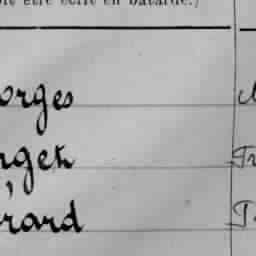 oit être écrit en bâtarde.)
orges
nget
Tr
rard